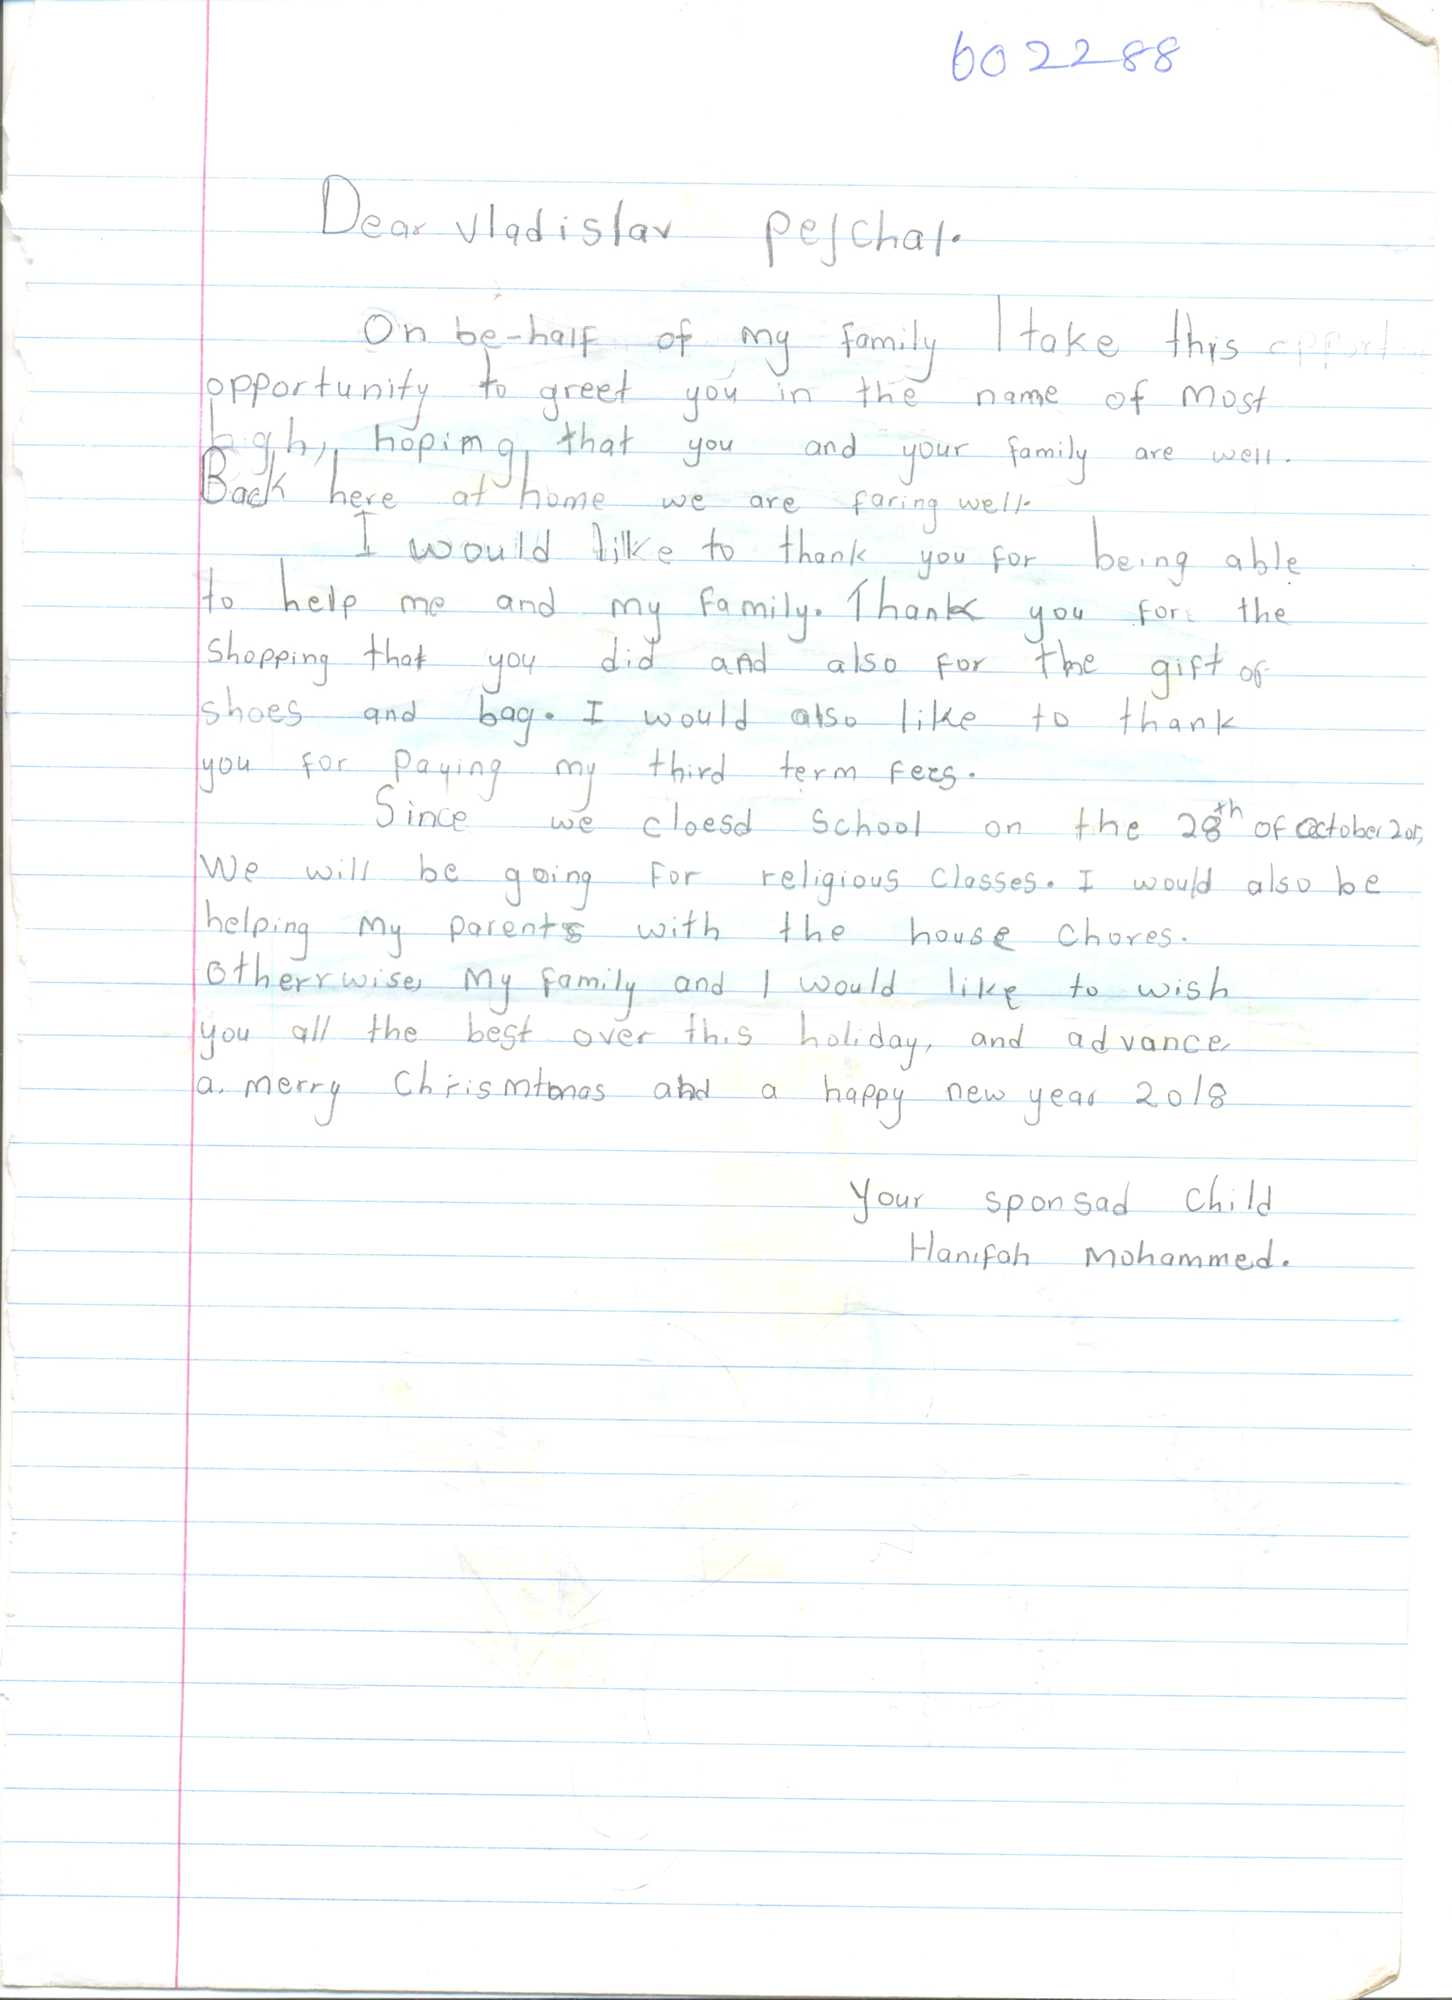 602288
Dear vladislav peschal.
On be-half of my family I take this
opportunity to greet you in the name of most
high, hoping that you and your family are well.
Back here at home we are faring well.
I would like to thank you for being able
to help me and my family. Thank you for the
shopping that you did and also for the gift of
shoes and bag. I would also like to thank
you for paying my third term fees.
Since we cloesd school on the 28th of October
We will be going for religious classes. I would also be
helping my parents with the house chores.
otherrwise, my family and I would like to wish
you all the best over this holiday, and advance
a merry and a happy new year 2018
Your sponsad child
Hanifah Mohammed.